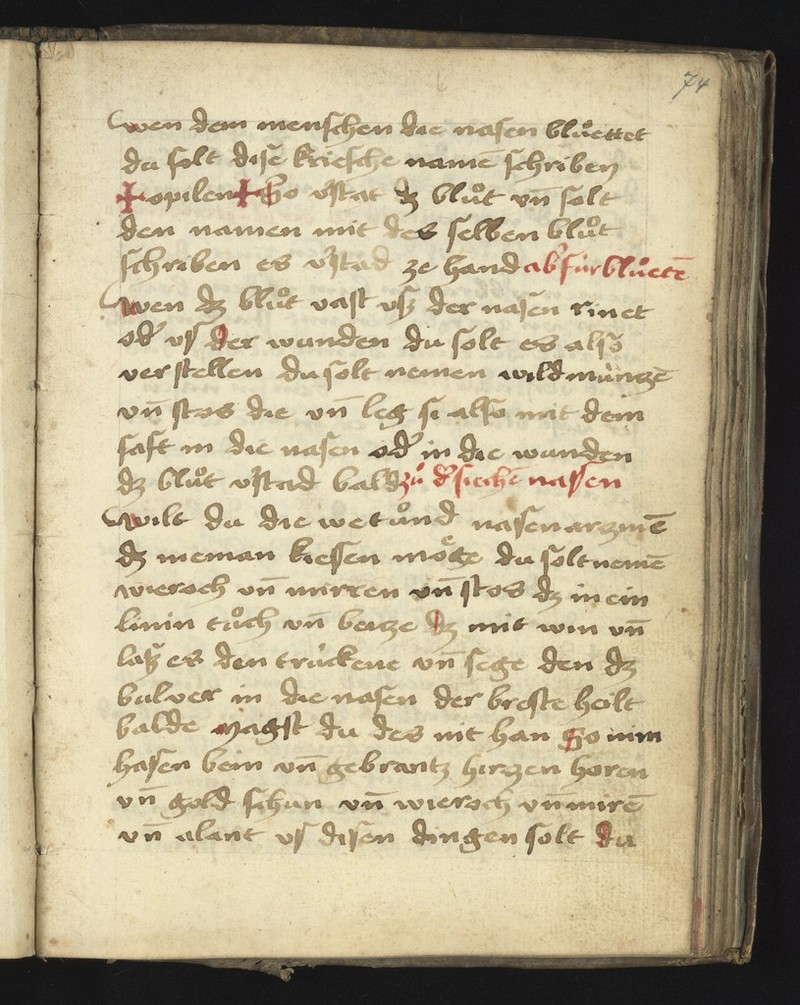 74
wen dem menschen die nasen bluͦettet
du solt dise kriesche namē schriben
✝opilen✝ So v̓stat dz bluͦt vn̄ solt
den namen mit des selben bluͦt
schriben es v̓stad ze hand ab fúr bluͦetē
Wen dz bluͦt vast vsz der nasen rinet
od̓ vs der wunden du solt es also
verstellen du solt nemen wild múnczē
vn̄ stos die vn̄ leg si also mit dem
saft in die nasen od̓ in die wunden
dz bluͦt v̓stad bald zuͦ d̓ siechē nassen
Wilt du die wetuͦnd nasen arczniē
dz nieman kiessen moͤge du solt nemē
wieroch vn̄ mirren vn̄ stos dz in ein
linin tuͦch vn̄ beize dz mit win vn̄
latz es den trúckene vn̄ sege den dz
bulver in die nasen der breste heilt
balde magst du des nit han So nim
hasen bein vn̄ gebrantz hirczen horen
vn̄ gold schun vn̄ wieroch vn̄ mirē
vn̄ alant vs disen dingen solt du